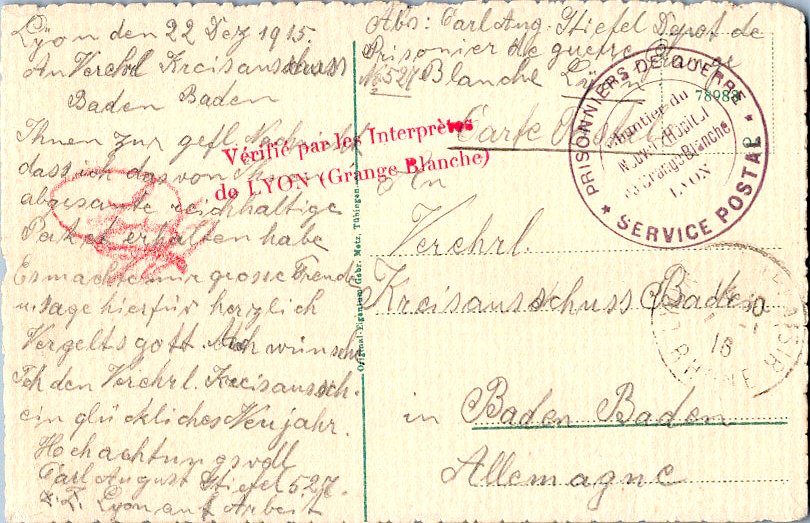 Lyon den 22 Dez 1915.
An Verehrl Kreisausschuss
Baden Baden
Ihnen zur gefl. Nachricht
dass ich das von Ihnen
abgesante reichhaltige
Paket erhalten habe
Es machte mir grosse Freude
u. sage hierfür herzlich
Vergelts gott. Auch wünsche
Ich den Verehrl. Kreisaussch.
ein glückliches Neujahr.
Hochachtungsvoll
Carl August Stiefel 527.
z. Z. Lyon auf Arbeit
Vérifié par les Interprètes
de LYON (Grange Blanche)
Original-Eigentum Gebr. Metz, Tübingen.
Abs: Carl Aug. Stiefel Depot de
Prisonier de guerre Grange
No 527 Blanche Lyon
Carte Postale
78983
PRISONNIERS DE GUERRE
★ SERVICE POSTAL ★
Chantier du
Nouvel Hôpital
de Grange Blanche
LYON
An
Verehrl.
Kreisausschuss Baden
in Baden Baden
Allemagne
RHONE